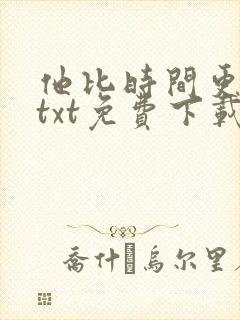 他比時間更
txt免費下載
喬什 烏尔里